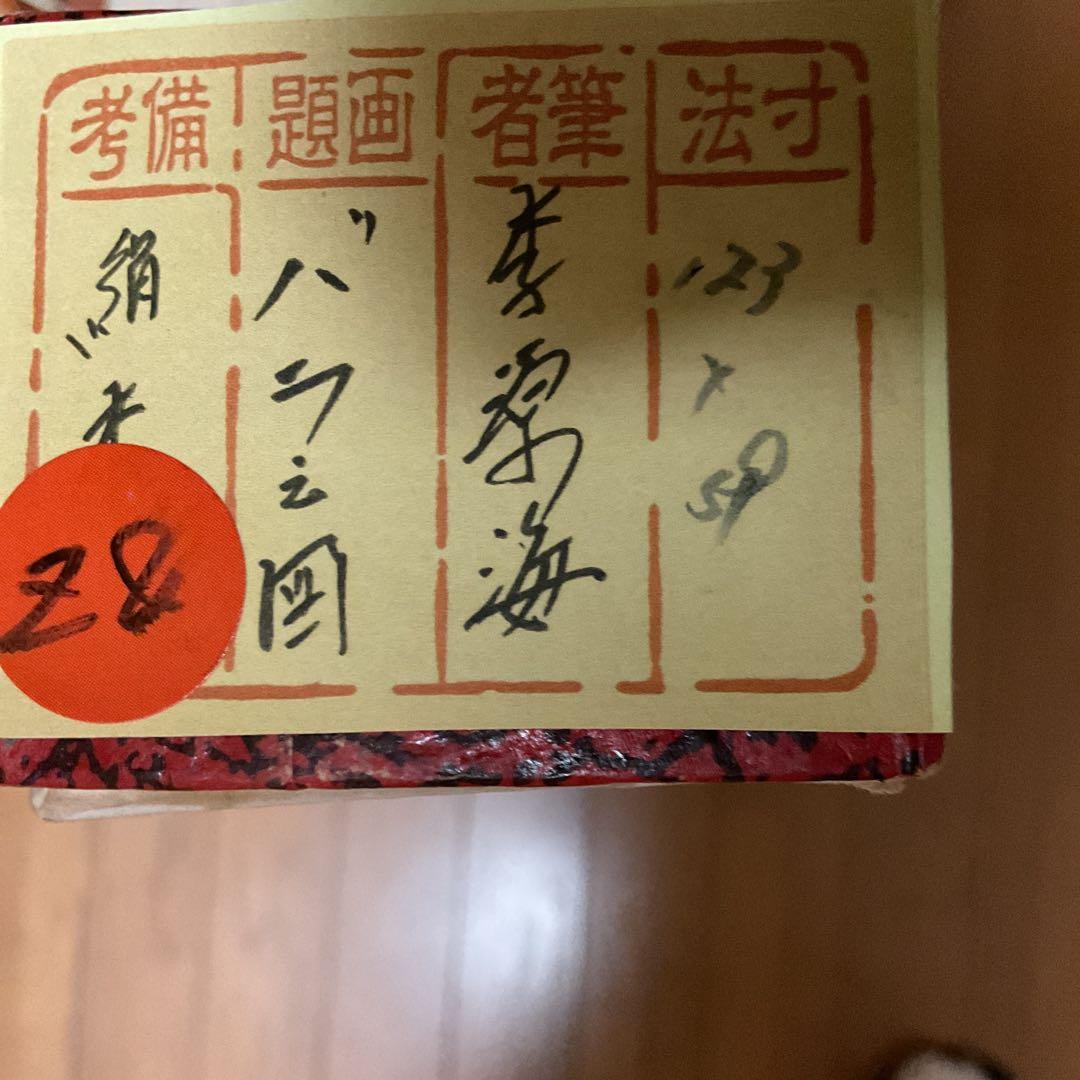 寸法
123
×
59
筆者
画題
バラ之図
備考
絹本
28